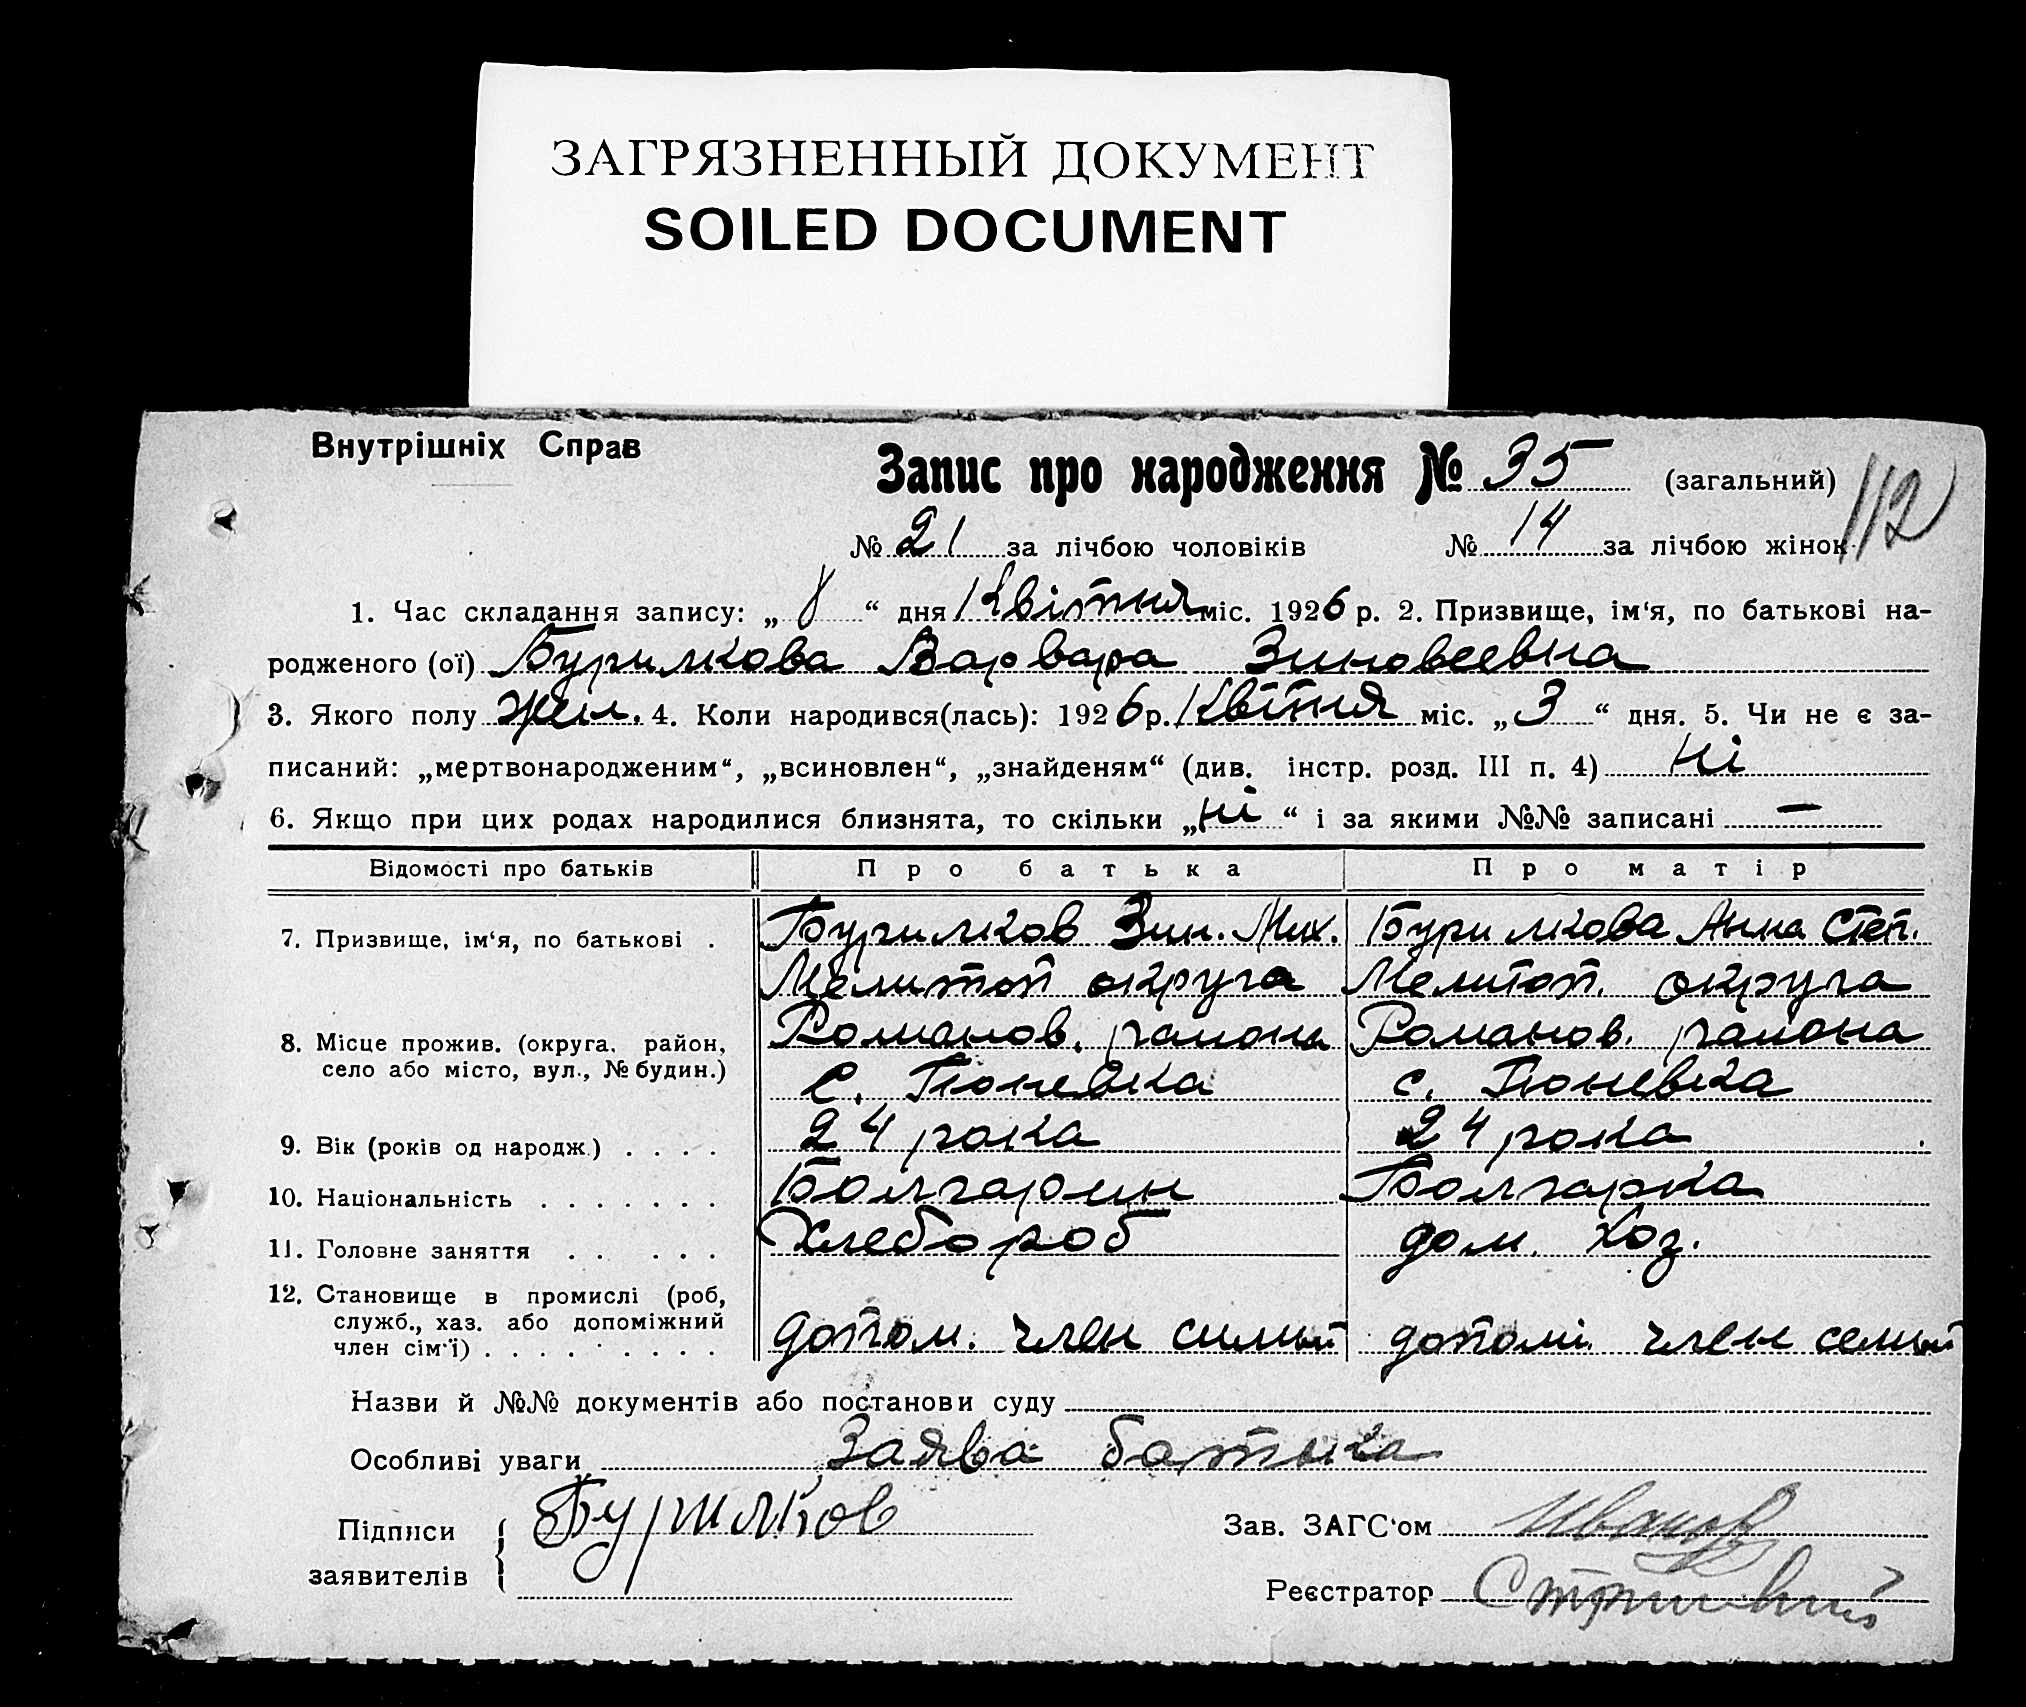 ЗАГРЯЗНЕННЫЙ ДОКУМЕНТ
SOILED DOCUMENT
Внутрішніх Справ
Запис про народження № 35 (загальний)
112
№ 21 за лічбою чоловіків № 14 за лічбою жінок
1. Час складання запису: „ 8 “ дня Квітня міс. 1926 р. 2. Призвище, ім‘я, по батькові на-
родженого (ої) Бурилкова Варвара Зиновеевна
3. Якого полу жен. 4. Коли народився(лась): 1926 р. Квітня міс. „ 3 “ дня. 5. Чи не є за-
писаний: „мертвонародженим“, „всиновлен“, „знайденям“ (див. інстр. розд. III п. 4) ні
6. Якщо при цих родах народилися близнята, то скільки „ ні “ і за якими №№ записані —
Відомості про батьків Про батька Про матір
7. Призвище, ім‘я, по батькові . Бурилков Зин. Мих. Бурилкова Анна Степ.
Мелитоп округа Мелитоп. округа
8. Місце прожив. (округа, район, село або місто, вул., № будин.) Романов. района Романов. района
с. Гюневка с. Гюневка
9. Вік (років од народж.) . . . . 24 рока 24 рока
10. Національність . . . . . . . Болгарин Болгарка
11. Головне заняття . . . . . Хлебороб дом. хоз.
12. Становище в промислі (роб,
служб., хаз. або допоміжний
член сім‘ї) . . . . . . . . . допом. член симьи допомі. член семьи
Назви й №№ документів або постанови суду
Особливі уваги Заява батька
Підписи заявителів Бурилков Зав. ЗАГС‘ом Иванов
Реєстратор